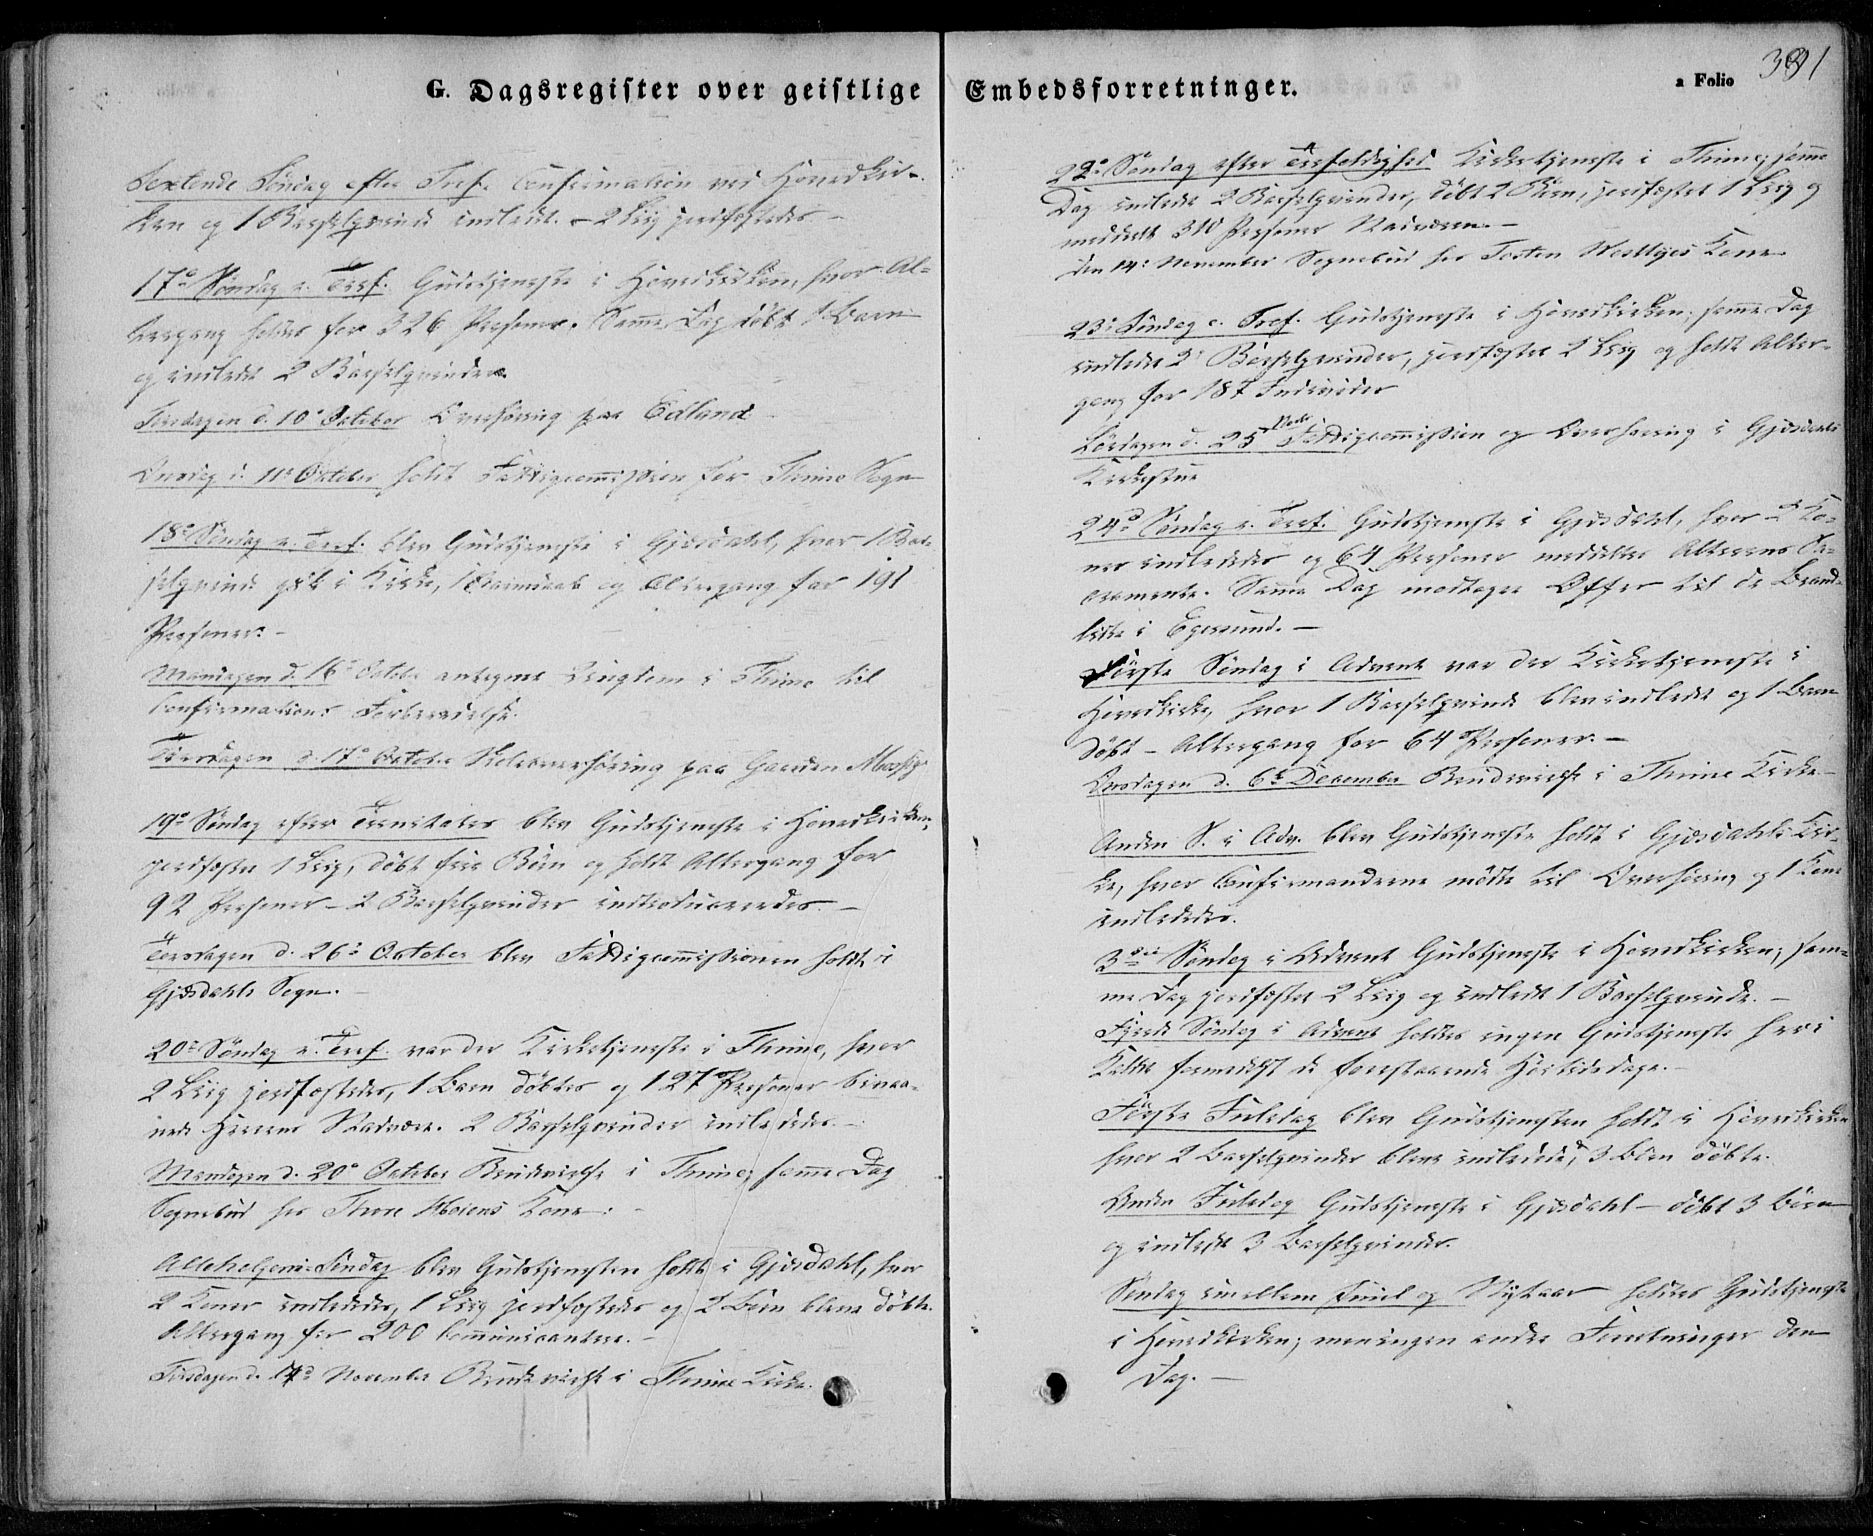 G. Dagsregister over geistlige Embedsforretninger.
a Folio 391
Sextende Søndag efter Tref. Confirmation ved Hovedkir-
ken og 1 Barselqvinde indledt. – 2 Liig jordfæstedes –
17de Søndag e. Tref. Gudstjeneste i Hovedkirken, hvor Al-
tergang holdes for 326 Personer. Samme Dag døbt 1 Barn
og indledt 2 Barselqvinder.
Tirsdagen d. 10de October Overhøring paa Edland
Onsdag d. 11te October holdt Fattigcommission for Thime Sogn
18de Søndag e. Tref. blev Gudstjeneste i Gjesdahl, hvor 1 Bar-
selqvinde gik i Kirke, 1 Barnedaab og Altergang for 191
Personer. –
Mandagen d. 16de October antegnet Ungdom i Thime til
Confirmations Forberedelse.
Tirsdagen d. 17de October Skoleoverhøring paa Gaarden
19de Søndag efter Trinitatis blev Gudstjeneste i Hovedkirken,
jordfæstet 1 Liig, døbt fire Børn og holdt Altergang for
92 Personer – 2 Barselqvinder introduceredes. –
Torsdagen d. 26de October blev Fattigcommissionen holdt i
Gjesdahls Sogn. –
20de Søndag e. Tref. var der Kirketjeneste i Thime, hvor
2 Liig jordfæstedes, 1 Barn døbtes og 127 Personer bivaa-
nede Herrens Nadvere. 2 Barselqvinder indlededes. –
Mandagen d. 20de October Brudevielse i Thime; samme Dag
Sognebud hos Thore Kone. –
Allehelgens-Søndag blev Gudstjenesten holdt i Gjesdahl, hvor
2 Koner indlededes, 1 Liig jordfæstedes og 2 Børn bleve døbte.
Altergang for 200 Communicantere. –
Tirsdagen d. November Brudevielse i Thime Kirke.
22de Søndag efter Trefoldighed Kirketjeneste i Thime; samme
Dag indledt 2 Barselqvinder, døbt 2 Børn, jordfæstet 1 Liig og
meddelt 310 Personer Nadveren. –
den 14de November Sognebud hos Tosten Kone
23de Søndag e. Tref. Gudstjeneste i Hovedkirken; samme Dag
indledt 2 Barselqvinder, jordfæstet 2 Liig og holdt Alter-
gang for 187 Individer
Lørdagen d. 25de Novbr. Fattigcommission og Overhøring i Gjesdahls
Kirkestue
24de Søndag e. Tref. Gudstjeneste i Gjesdahl, hvor 2 Ko-
ner indlededes og 64 Personer meddeltes Alterens Sa-
cramente. Samme Dag modtoges Offer til de Brand-
lidte i Egersund. –
Første Søndag i Advent var der Kirketjeneste i
Hovedkirke, hvor 1 Barselqvinde blev indledt og 1 Barn
døbt – Altergang for 64 Personer. –
Onsdagen d. 6te December Brudevielse i Thime Kirke –
Anden S. i Adv. blev Gudstjeneste holdt i Gjesdahls Kir-
ke, hvor Confirmanderne mødte til Overhøring og 1 Kone
indlededes.
3die Søndag i Advent Gudstjeneste i Hovedkirken; sam-
me Dag jordfæstet 2 Liig og indledt 1 Barselqvinde. –
Fjerde Søndag i Advent holdtes ingen Gudstjeneste her i
Kaldet formedelst de forestaaende Høitidsdage. –
Første Juledag blev Gudstjenesten holdt i Hovedkirken
hvor 2 Barselqvinder bleve indledede, 3 Børn døbte.
Anden Juledag Gudstjeneste i Gjesdahl – døbt 3 Børn
og indledt 3 Barselqvinder.
Søndag imellem Juul og Nytaar holdtes Gudstjeneste
i Hovedkirken; men ingen andre Forretninger den
Dag. –